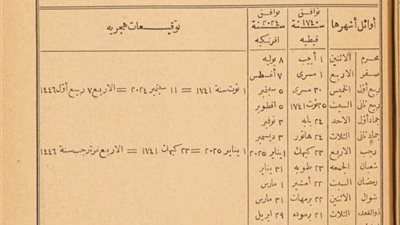 أوائل أشهرها
توافق سنة ١٧٤٠ قبطيه
توافق سنة ٢٠٢٤ افرنكيه
توقيعات هجريه
محرم الاثنين ١ أبيب ٨ يوليه
صفر الاربع ١ مسرى ٧ أغسطس
ربيع أول الخميس ٣٠ مسرى ٥ سبتمبر ١ توت سنة ١٧٤١ = ١١ سبتمبر ٢٠٢٤ = الاربع ٧ ربيع أول ١٤٤٦
ربيع ثانى السبت ٢٥ توت ١٧٤١ ٥ اقطوبر
جماد أول الاحد ٢٤ بابه ٣ نوفبر
جماد ثانى الثلاث ٢٤ هاتور ٣ ديسمبر
رجب الاربع ٢٣ كيهك ١ يناير ٢٠٢٥ ١ يناير ٢٠٢٥ = ٢٣ كيهك ١٧٤١ = الاربع غرة رجب سنة ١٤٤٦
شعبان الجمعه ٢٣ طوبه ٣١ يناير
رمضان السبت ٢٢ أمشير ١ مارس
شوال الاثنين ٢٢ برمهات ٣١ مارس
ذوالقعده الثلاث ٢١ برموده ٢٩ ابريل